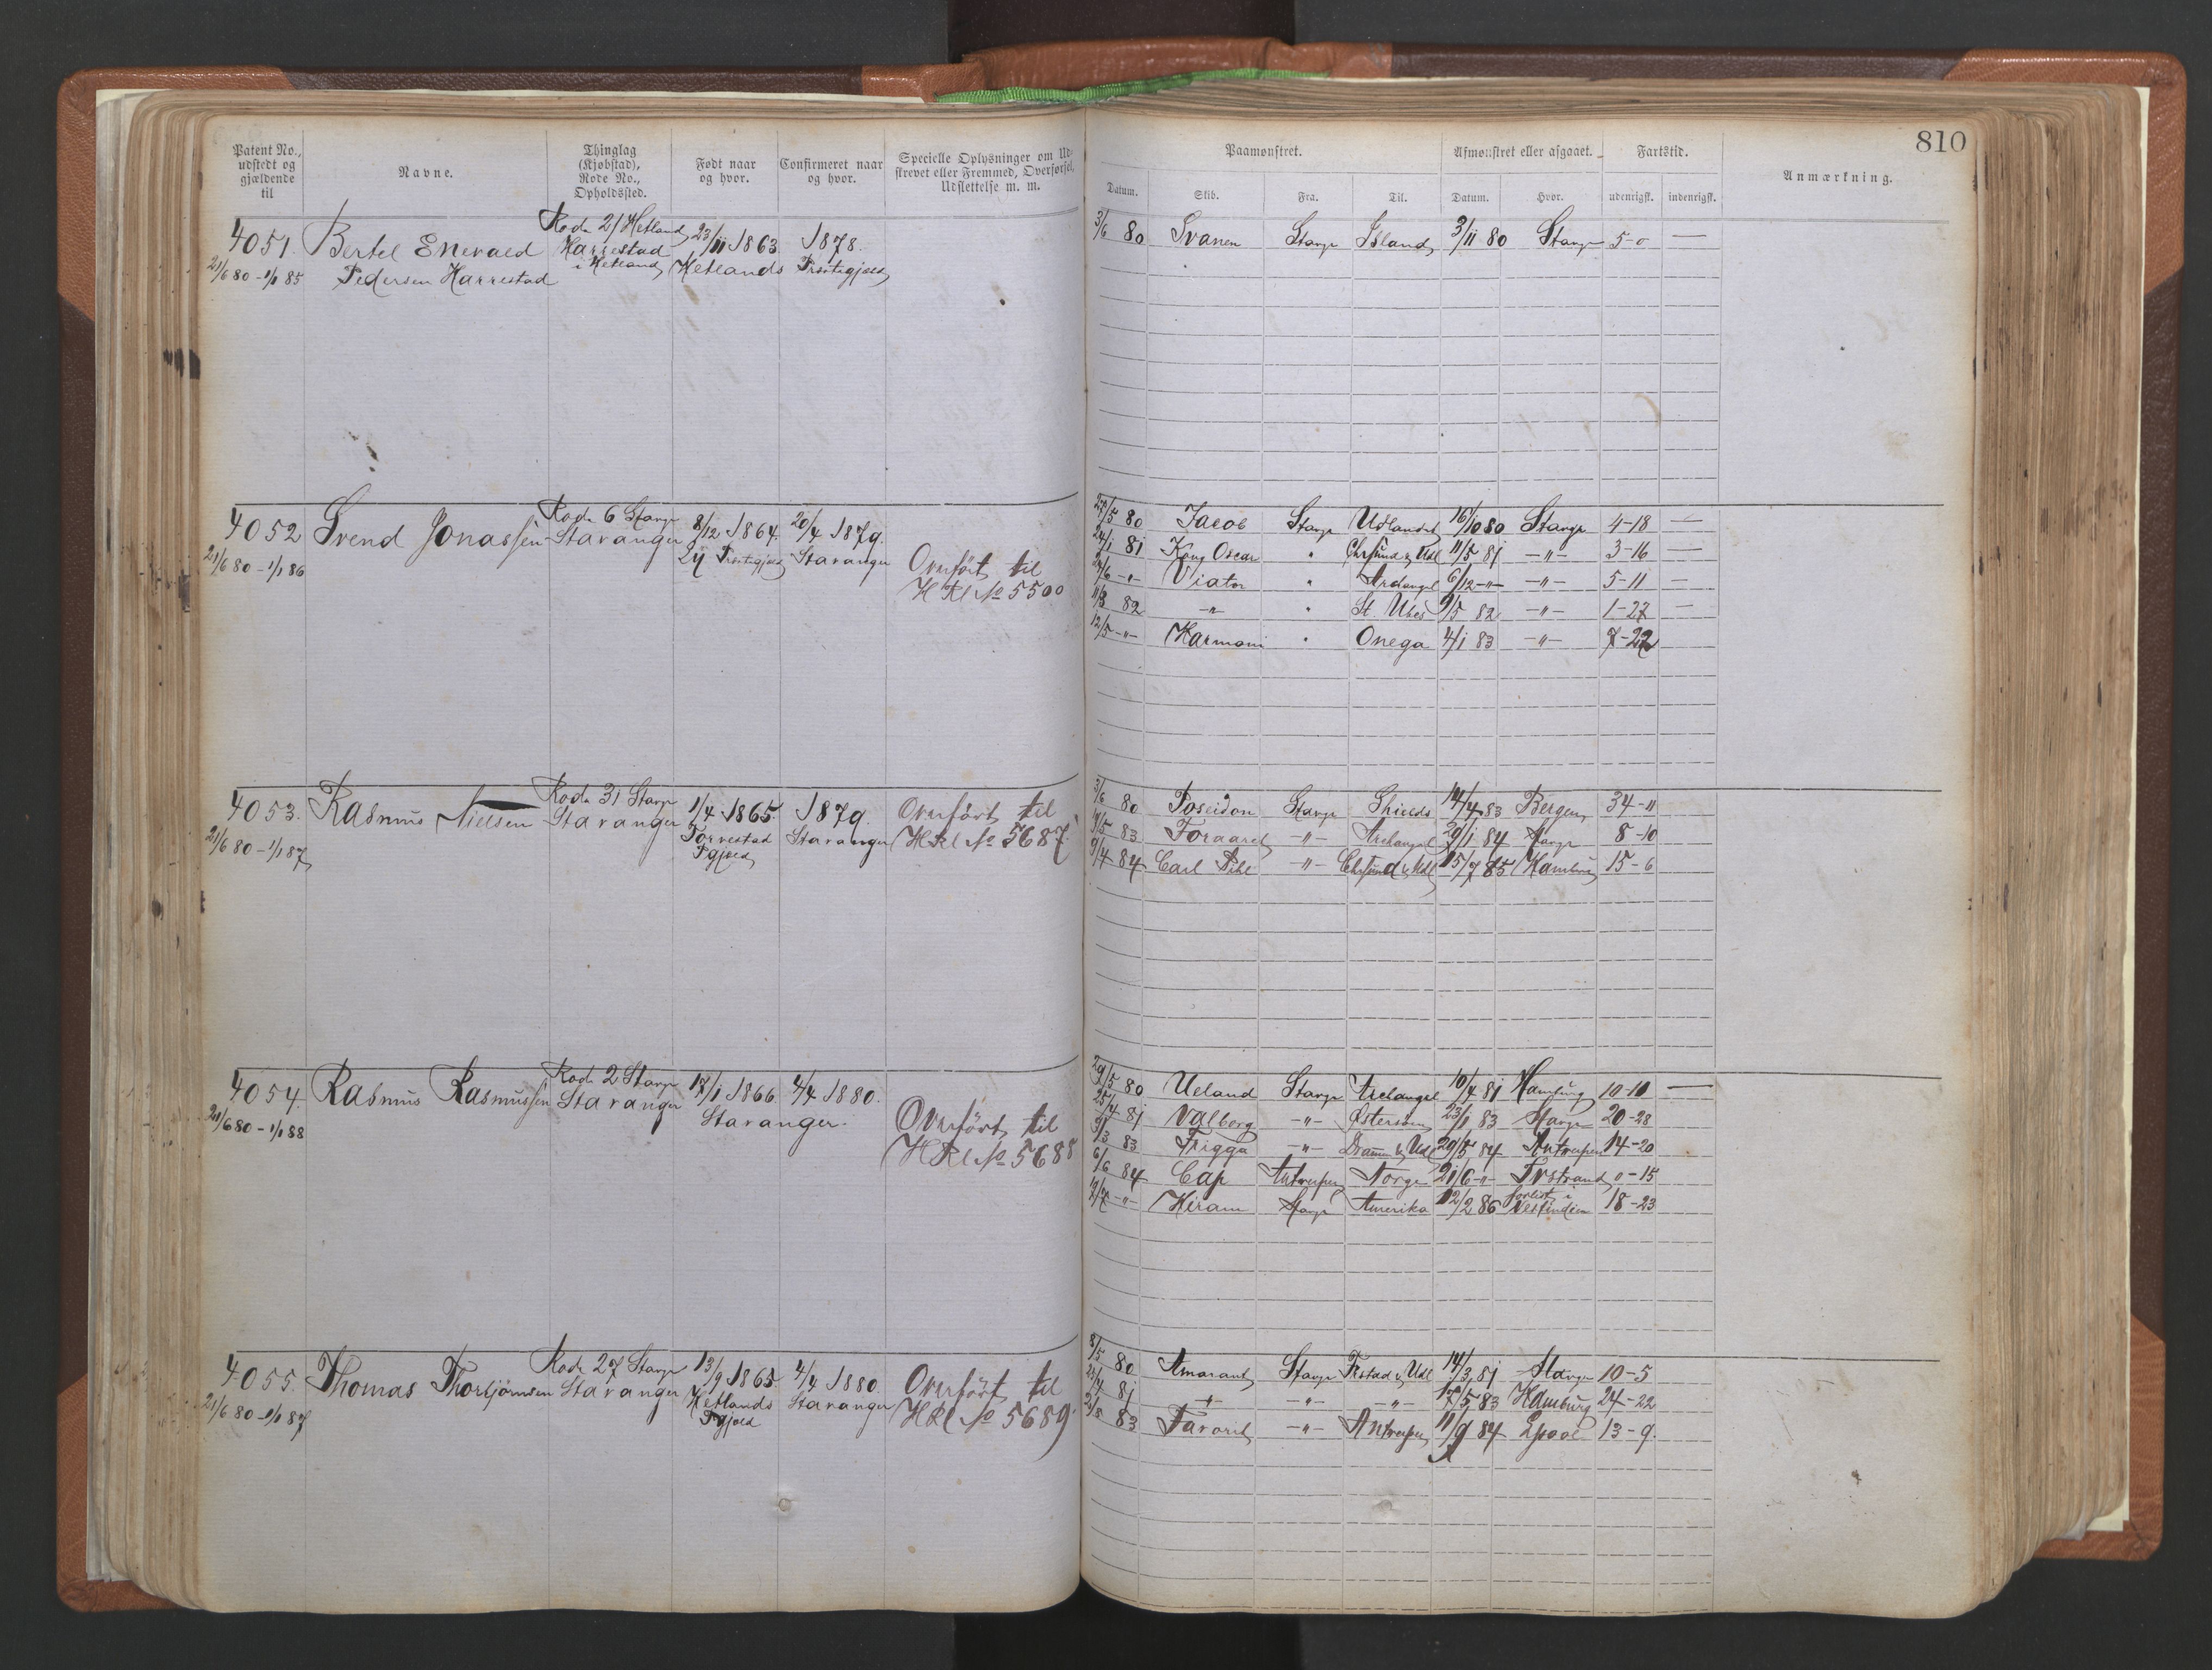 810
Patent No., udstedt og gjældende til
Navne.
Thinglag (Kjøbstad), Rode No., Opholdssted.
Født naar og hvor.
Confirmeret naar og hvor.
Specielle Oplysninger om Udskrevet eller Fremmed, Overførsel, Udslettelse m. m.
Paamønstret.
Afmønstret eller afgaaet.
Fartstid.
Anmærkning.
Datum. Skib. Fra. Til. Datum. Hvor. udenrigsk. indenrigsk.
4051. Bertel Enevald Rode 21 Hetland 23/11 1863. 1878.
21/6 80 - 1/1 85 Pedersen Harrestad Harrestad i Hetland Hetlands Præstegjæld
3/6 80 Svanen Stavgr Island 3/11 80 Stavgr 5-0 —
4052 Svend Jonassen Rode 6 Stavgr 8/12 1864. 20/4 1879.
21/6 80 - 1/1 86 Stavanger Præstegjæld Stavanger
Overført til
H Rl No 5500
22/5 80 Jacob Stavgr Udlandet 16/10 80 Stavgr 4-18 —
24/1 81 Kong Oscar " Chrsund & Udl 11/5 81 -"- 3-16 —
24/6 -"- Viator " Archangel 6/12 -"- -"- 5-11 —
11/3 82 -"- " St Ubes 9/5 82 -"- 1-27 —
12/5 -"- Harmoni " Onega 4/1 83 -"- 7-22
4053. Rasmus Nielsen Rode 31 Stavgr 1/4 1865. 1879.
21/6 80 - 1/1 87 Stavanger Torvestad Pgjæld Stavanger
Overført til
H Rl No 5687
3/6 80 Poseidon Stavgr Shields 14/4 83 Bergen 34-11
19/5 83 Foraaret -"- Archangel 29/1 84 Stavgr 8-10
9/4 84. Carl Pihl -"- Chrsund & Udl 15/7 85 Hamburg 15-6
4054. Rasmus Rasmussen Rode 2 Stavgr 17/1 1866 4/4 1880.
21/6 80 - 1/1 88 Stavanger Stavanger.
Overført til
H Rl No 5688
29/5 80 Ueland Stavgr Archangel 10/4 81 Hamburg 10-10 —
25/4 81 Valberg -"- Østersøen 23/1 83 Stavgr 20-28
3/3 83 Frigga -"- Dramn & Udl 29/5 84 Antwerpen 14-20
6/6 84 Cap Antwerpen Norge 21/6 -"- Frstrand "-15
-"- Hiram Stavgr Amerika 12/2 86 forlist i Vestindien 18-23
4055. Thomas Thorbjørnsen Rode 27 Stavgr 13/9 1865 4/4 1880.
21/6 80 - 1/1 87 Stavanger Hetlands Pgjæld Stavanger
Overført til
H Rl No 5689.
8/5 80 Amarant Stavgr Frstad & Udl 14/3 81 Stavgr 10-5
81 -"- -"- -"- 17/5 83 Hamburg 24-22
83 Favorit -"- Antwerpen 11/9 84 Lpool 13-9.